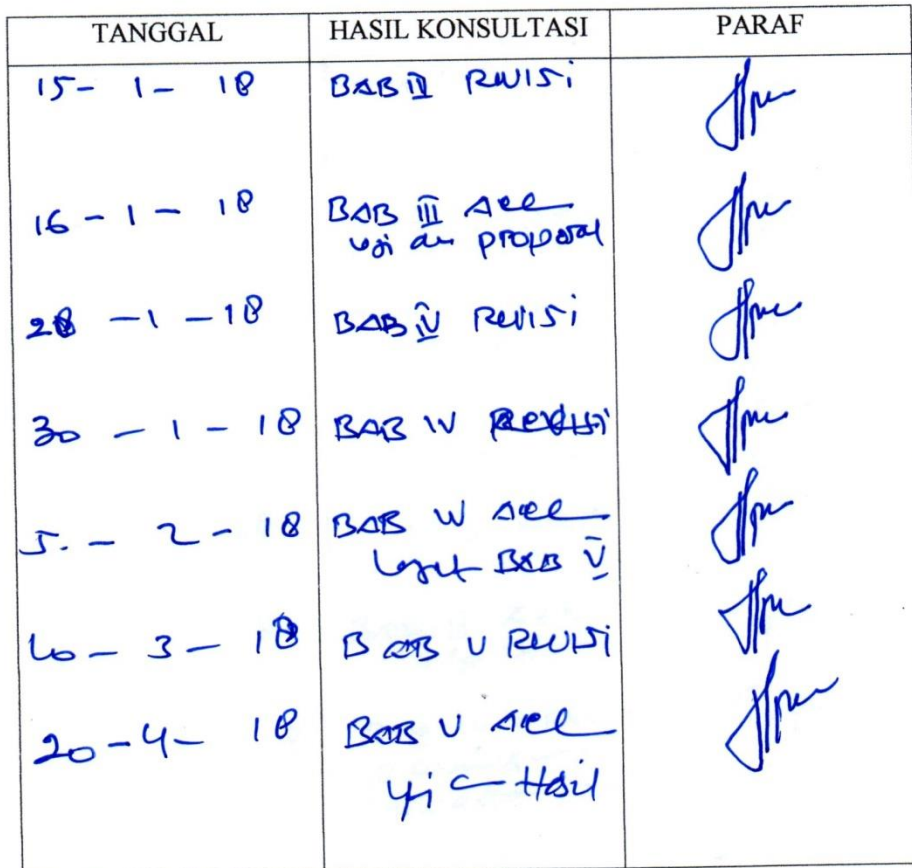 TANGGAL HASIL KONSULTASI PARAF
15 - 1 - 18 BAB III Revisi
16 - 1 - 18 BAB III Acc
proposal
28 - 1 - 18 BAB IV Revisi
30 - 1 - 18 BAB IV Revisi
5. - 2 - 18 BAB IV Acc
BAB V
- 3 - 18 BAB V Revisi
20 - 4 - 18 BAB V Acc
Hasil